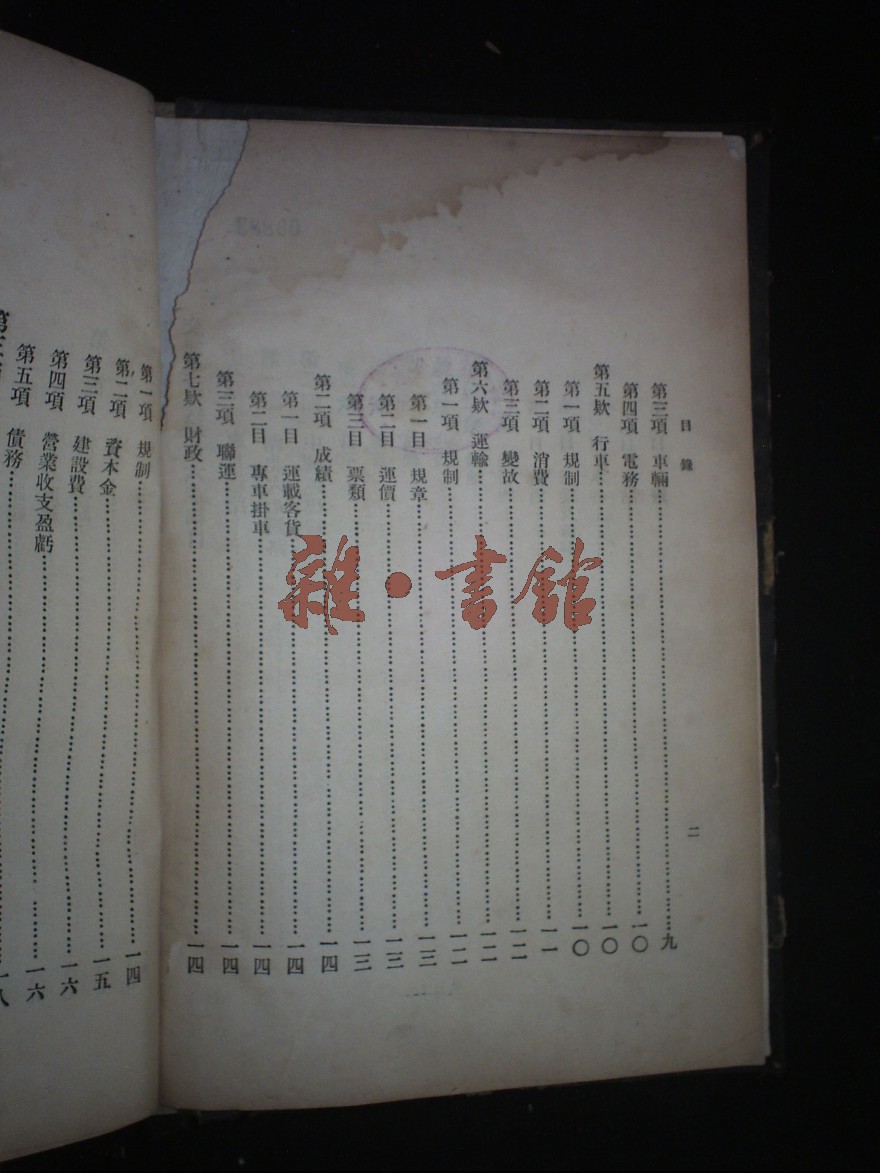 目錄
第三項 車輛⋯⋯九
第四項 電務⋯⋯一〇
第五欵 行車⋯⋯一〇
第一項 規制⋯⋯一〇
第二項 消費⋯⋯一一
第三項 變故⋯⋯一二
第六欵 運輸⋯⋯一二
第一項 規制⋯⋯一二
第一目 規章⋯⋯一三
第二目 運價⋯⋯一三
第三目 票類⋯⋯一三
第二項 成績⋯⋯一四
第一目 運載客貨⋯⋯一四
第二目 專車掛車⋯⋯一四
第三項 聯運⋯⋯一四
第七欵 財政⋯⋯一四
二
第一項 規制⋯⋯一四
第二項 資本金⋯⋯一五
第三項 建設費⋯⋯一六
第四項 營業收支盈虧⋯⋯一六
第五項 債務⋯⋯一八
雜·書館